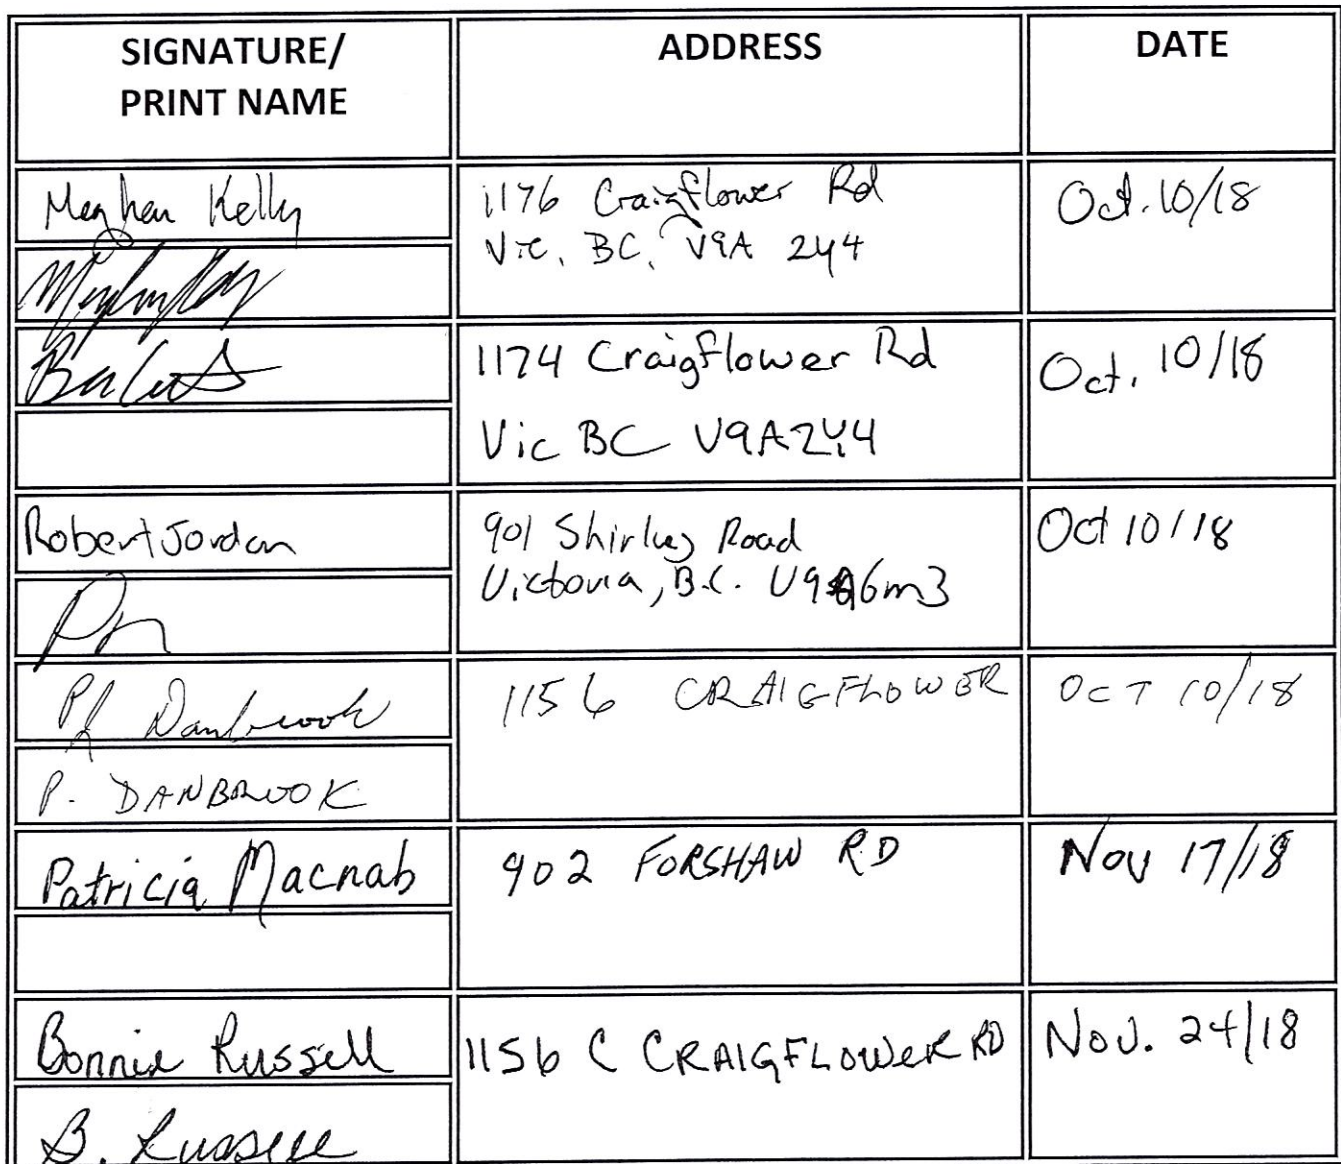 SIGNATURE/
PRINT NAME
ADDRESS
DATE
Meghan Kelly
1176 Craigflower Rd
Vic, BC, V9A 2Y4
Oct. 10/18
1174 Craigflower Rd
Vic BC V9A2Y4
Oct. 10/18
Robert Jordan
901 Shirley Road
Victoria, B.C. V9A6m3
Oct 10/18
P Danbrook
P. DANBROOK
1156 CRAIGFLOWER
OCT 10/18
Patricia Macnab
902 FORSHAW RD
Nov 17/18
Bonnie Russell
B. Russell
1156 C CRAIGFLOWER RD
Nov. 24/18